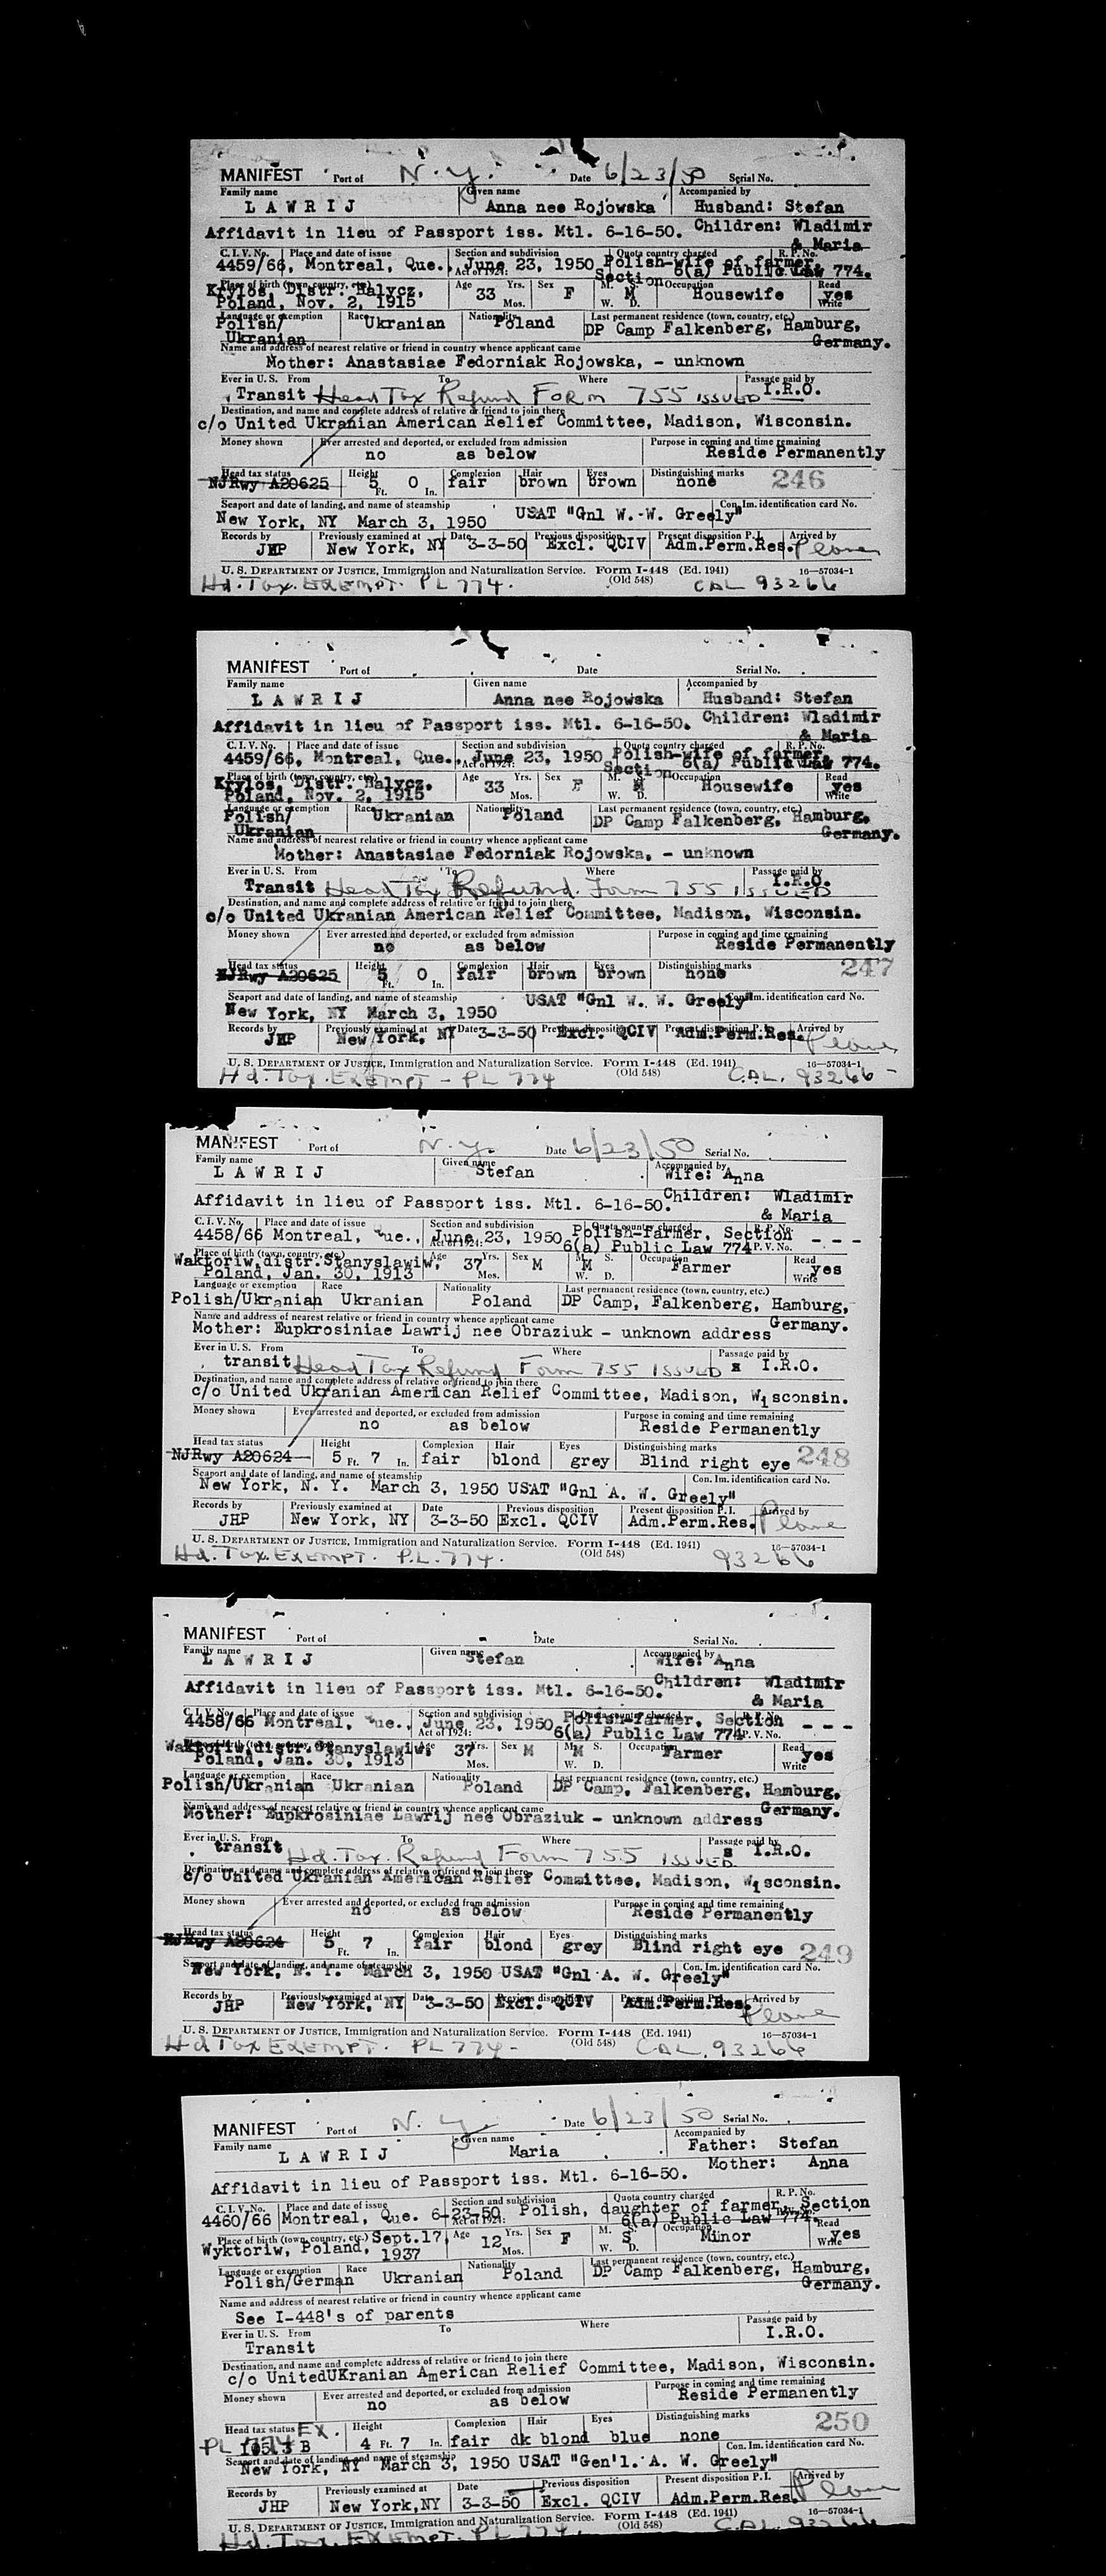 MANIFEST Port of N.Y. Date 6/23/50 Serial No.
Family name Given name Accompanied by
LAWRIJ Anna nee Rojowska Husband: Stefan
Affidavit in lieu of Passport iss. Mtl. 6-16-50. Children: Wladimir
& Maria
C. I. V. No. Place and date of issue Section and subdivision Quota country charged R. P. No.
4459/66, Montreal, Que., June 23, 1950 Polish-wife of farmer,
Act of 1924: Section 6(a) Public Law 774.
Place of birth (town, country, etc.) Age Yrs. Sex M. S. Occupation Read
Krylos, Distr. Halycz, 33 F M Housewife yes
Poland, Nov. 2, 1915 Mos. W. D. Write
Language or exemption Race Nationality Last permanent residence (town, country, etc.)
Polish/ Ukranian Poland DP Camp Falkenberg, Hamburg,
Ukranian Germany.
Name and address of nearest relative or friend in country whence applicant came
Mother: Anastasiae Fedorniak Rojowska, - unknown
Ever in U. S. From To Where Passage paid by
Transit Head Tax Refund Form 755 ISSUED I.R.O.
Destination, and name and complete address of relative or friend to join there
c/o United Ukranian American Relief Committee, Madison, Wisconsin.
Money shown Ever arrested and deported, or excluded from admission Purpose in coming and time remaining
no as below Reside Permanently
Head tax status Height Complexion Hair Eyes Distinguishing marks
NJRwy A20625 5 Ft. 0 In. fair brown brown none 246
Seaport and date of landing, and name of steamship Con. Im. identification card No.
New York, NY March 3, 1950 USAT "Gnl W. W. Greely"
Records by Previously examined at Date Previous disposition Present disposition P. I. Arrived by
JHP New York, NY 3-3-50 Excl. QCIV Adm.Perm.Res. Plane
U. S. DEPARTMENT OF JUSTICE, Immigration and Naturalization Service. Form I-448 (Ed. 1941) 16—57034-1
(Old 548)
Hd. Tax. EXEMPT. PL 774. CAL 93266
MANIFEST Port of Date Serial No.
Family name Given name Accompanied by
LAWRIJ Anna nee Rojowska Husband: Stefan
Affidavit in lieu of Passport iss. Mtl. 6-16-50. Children: Wladimir
& Maria
C. I. V. No. Place and date of issue Section and subdivision Quota country charged R. P. No.
4459/66, Montreal, Que., June 23, 1950 Polish-wife of farmer,
Act of 1924: Section 6(a) Public Law 774.
Place of birth (town, country, etc.) Age Yrs. Sex M. S. Occupation Read
Krylos, Distr. Halycz, 33 F M Housewife yes
Poland, Nov. 2, 1915 Mos. W. D. Write
Language or exemption Race Nationality Last permanent residence (town, country, etc.)
Polish/ Ukranian Poland DP Camp Falkenberg, Hamburg,
Ukranian Germany.
Name and address of nearest relative or friend in country whence applicant came
Mother: Anastasiae Fedorniak Rojowska, - unknown
Ever in U. S. From To Where Passage paid by
Transit Head Tax Refund. Form 755 ISSUED I.R.O.
Destination, and name and complete address of relative or friend to join there
c/o United Ukranian American Relief Committee, Madison, Wisconsin.
Money shown Ever arrested and deported, or excluded from admission Purpose in coming and time remaining
no as below Reside Permanently
Head tax status Height Complexion Hair Eyes Distinguishing marks
NJRwy A20625 5 Ft. 0 In. fair brown brown none 247
Seaport and date of landing, and name of steamship Con. Im. identification card No.
New York, NY March 3, 1950 USAT "Gnl W. W. Greely"
Records by Previously examined at Date Previous disposition Present disposition P. I. Arrived by
JHP New York, NY 3-3-50 Excl. QCIV Adm.Perm.Res. Plane
U. S. DEPARTMENT OF JUSTICE, Immigration and Naturalization Service. Form I-448 (Ed. 1941) 16—57034-1
(Old 548)
Hd. Tax. EXEMPT - PL 774 CAL. 93266
MANIFEST Port of N.Y. Date 6/23/50 Serial No.
Family name Given name Accompanied by
LAWRIJ Stefan Wife: Anna
Affidavit in lieu of Passport iss. Mtl. 6-16-50. Children: Wladimir
& Maria
C. I. V. No. Place and date of issue Section and subdivision Quota country charged R. P. No.
4458/66 Montreal, Que., June 23, 1950 Polish-farmer, Section - - -
Act of 1924: 6(a) Public Law 774 P. V. No.
Place of birth (town, country, etc.) Age Yrs. Sex M. S. Occupation Read
Waktoriw, distr. Stanyslawiw, 37 M M Farmer yes
Poland, Jan. 30, 1913 Mos. W. D. Write
Language or exemption Race Nationality Last permanent residence (town, country, etc.)
Polish/Ukranian Ukranian Poland DP Camp, Falkenberg, Hamburg,
Germany.
Name and address of nearest relative or friend in country whence applicant came
Mother: Eupkrosiniae Lawrij nee Obraziuk - unknown address
Ever in U. S. From To Where Passage paid by
transit Head Tax Refund Form 755 ISSUED I.R.O.
Destination, and name and complete address of relative or friend to join there
c/o United Ukranian American Relief Committee, Madison, Wisconsin.
Money shown Ever arrested and deported, or excluded from admission Purpose in coming and time remaining
no as below Reside Permanently
Head tax status Height Complexion Hair Eyes Distinguishing marks
NJRwy A20624 5 Ft. 7 In. fair blond grey Blind right eye 248
Seaport and date of landing, and name of steamship Con. Im. identification card No.
New York, N. Y. March 3, 1950 USAT "Gnl A. W. Greely"
Records by Previously examined at Date Previous disposition Present disposition P. I. Arrived by
JHP New York, NY 3-3-50 Excl. QCIV Adm.Perm.Res. Plane
U. S. DEPARTMENT OF JUSTICE, Immigration and Naturalization Service. Form I-448 (Ed. 1941) 16—57034-1
(Old 548)
Hd. Tax EXEMPT. P.L. 774. 93266
MANIFEST Port of Date Serial No.
Family name Given name Accompanied by
LAWRIJ Stefan Wife: Anna
Affidavit in lieu of Passport iss. Mtl. 6-16-50. Children: Wladimir
& Maria
C. I. V. No. Place and date of issue Section and subdivision Quota country charged R. P. No.
4458/66 Montreal, Que., June 23, 1950 Polish-farmer, Section - - -
Act of 1924: 6(a) Public Law 774 P. V. No.
Place of birth (town, country, etc.) Age Yrs. Sex M. S. Occupation Read
Waktoriw, distr. Stanyslawiw, 37 M M Farmer yes
Poland, Jan. 30, 1913 Mos. W. D. Write
Language or exemption Race Nationality Last permanent residence (town, country, etc.)
Polish/Ukranian Ukranian Poland DP Camp, Falkenberg, Hamburg,
Germany.
Name and address of nearest relative or friend in country whence applicant came
Mother: Eupkrosiniae Lawrij nee Obraziuk - unknown address
Ever in U. S. From To Where Passage paid by
transit Hd. Tax. Refund Form 755 ISSUED I.R.O.
Destination, and name and complete address of relative or friend to join there
c/o United Ukranian American Relief Committee, Madison, Wisconsin.
Money shown Ever arrested and deported, or excluded from admission Purpose in coming and time remaining
no as below Reside Permanently
Head tax status Height Complexion Hair Eyes Distinguishing marks
NJRwy A20624 5 Ft. 7 In. fair blond grey Blind right eye 249
Seaport and date of landing, and name of steamship Con. Im. identification card No.
New York, N. Y. March 3, 1950 USAT "Gnl A. W. Greely"
Records by Previously examined at Date Previous disposition Present disposition P. I. Arrived by
JHP New York, NY 3-3-50 Excl. QCIV Adm.Perm.Res. Plane
U. S. DEPARTMENT OF JUSTICE, Immigration and Naturalization Service. Form I-448 (Ed. 1941) 16—57034-1
(Old 548)
Hd Tax EXEMPT. PL 774- CAL. 93266
MANIFEST Port of N.Y. Date 6/23/50 Serial No.
Family name Given name Accompanied by
LAWRIJ Maria Father: Stefan
Mother: Anna
Affidavit in lieu of Passport iss. Mtl. 6-16-50.
C. I. V. No. Place and date of issue Section and subdivision Quota country charged R. P. No.
4460/66 Montreal, Que. 6-23-50 Polish, daughter of farmer, Section
Act of 1924: 6(a) Public Law 774.
Place of birth (town, country, etc.) Sept.17, Age Yrs. Sex M. S. Occupation Read
Wyktoriw, Poland, 1937 12 Mos. F S W. D. Minor yes Write
Language or exemption Race Nationality Last permanent residence (town, country, etc.)
Polish/German Ukranian Poland DP Camp Falkenberg, Hamburg,
Germany.
Name and address of nearest relative or friend in country whence applicant came
See I-448's of parents
Ever in U. S. From To Where Passage paid by
Transit I.R.O.
Destination, and name and complete address of relative or friend to join there
c/o UnitedUKranian American Relief Committee, Madison, Wisconsin.
Money shown Ever arrested and deported, or excluded from admission Purpose in coming and time remaining
no as below Reside Permanently
Head tax status EX. Height Complexion Hair Eyes Distinguishing marks
PL 774 4 Ft. 7 In. fair dk blond blue none 250
Seaport and date of landing, and name of steamship Con. Im. identification card No.
New York, NY March 3, 1950 USAT "Gen'l. A. W. Greely"
Records by Previously examined at Date Previous disposition Present disposition P. I. Arrived by
JHP New York,NY 3-3-50 Excl. QCIV Adm.Perm.Res. Plane
U. S. DEPARTMENT OF JUSTICE, Immigration and Naturalization Service. Form I-448 (Ed. 1941) 16—57034-1
(Old 548)
Hd. Tax. EXEMPT. PL 774. CAL. 93266